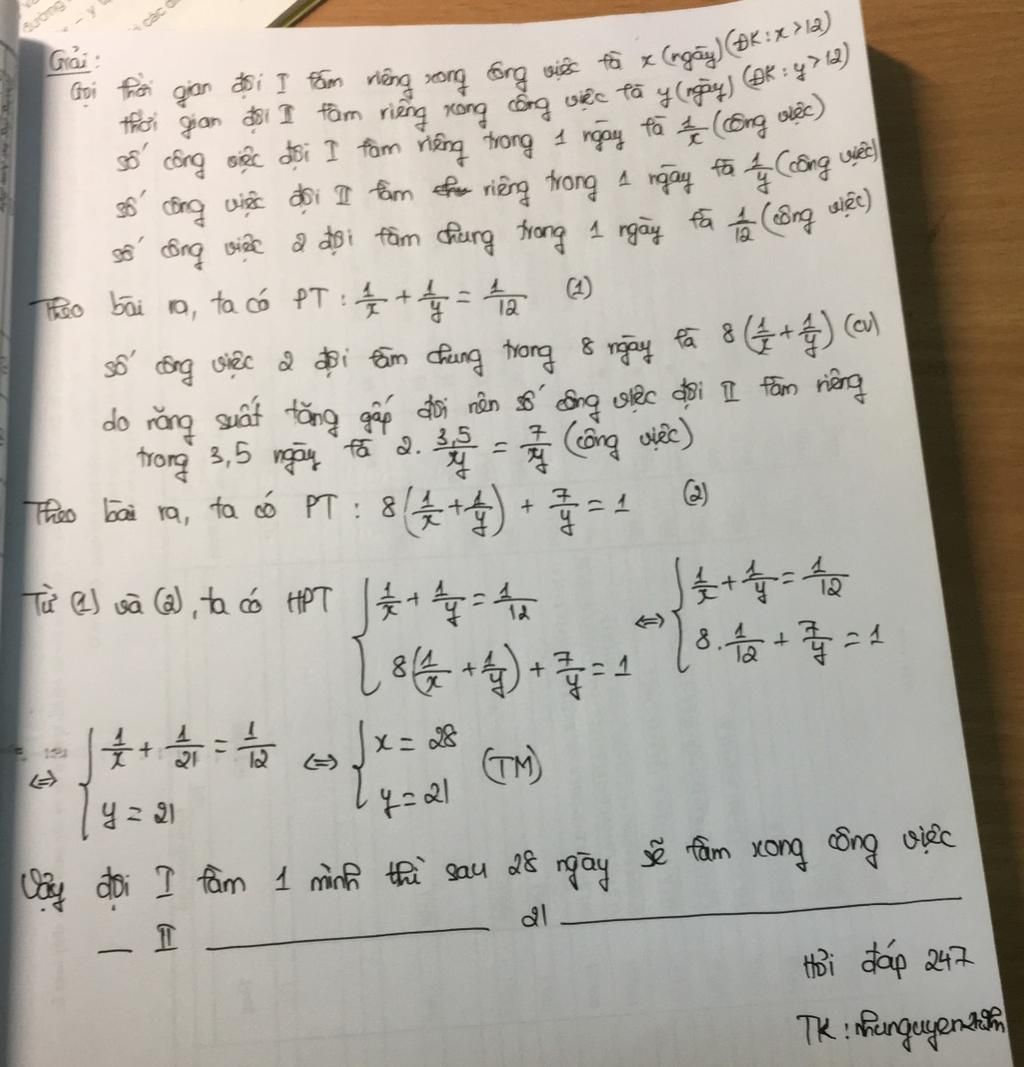 đường
- y
các đ
Giải:
Gọi thời gian đội I làm riêng xong công việc là x (ngày) (ĐK: x > 12)
thời gian đội II làm riêng xong công việc là y (ngày) (ĐK: y > 12)
số công việc đội I làm riêng trong 1 ngày là 1/x (công việc)
số công việc đội II làm riêng trong 1 ngày là 1/y (công việc)
số công việc 2 đội làm chung trong 1 ngày là 1/12 (công việc)
Theo bài ra, ta có PT: 1/x + 1/y = 1/12 (1)
số công việc 2 đội làm chung trong 8 ngày là 8(1/x + 1/y) (CV)
do năng suất tăng gấp đôi nên số công việc đội II làm riêng
trong 3,5 ngày là 2. 3,5/y = 7/y (công việc)
Theo bài ra, ta có PT: 8(1/x + 1/y) + 7/y = 1 (2)
Từ (1) và (2), ta có HPT { 1/x + 1/y = 1/12 ; 8(1/x + 1/y) + 7/y = 1 ⇔ { 1/x + 1/y = 1/12 ; 8. 1/12 + 7/y = 1
⇔ { 1/x + 1/21 = 1/12 ; y = 21 ⇔ { x = 28 ; y = 21 (TM)
Vậy đội I làm 1 mình thì sau 28 ngày sẽ làm xong công việc
— II ———— 21 ————
Hỏi đáp 247
TK: